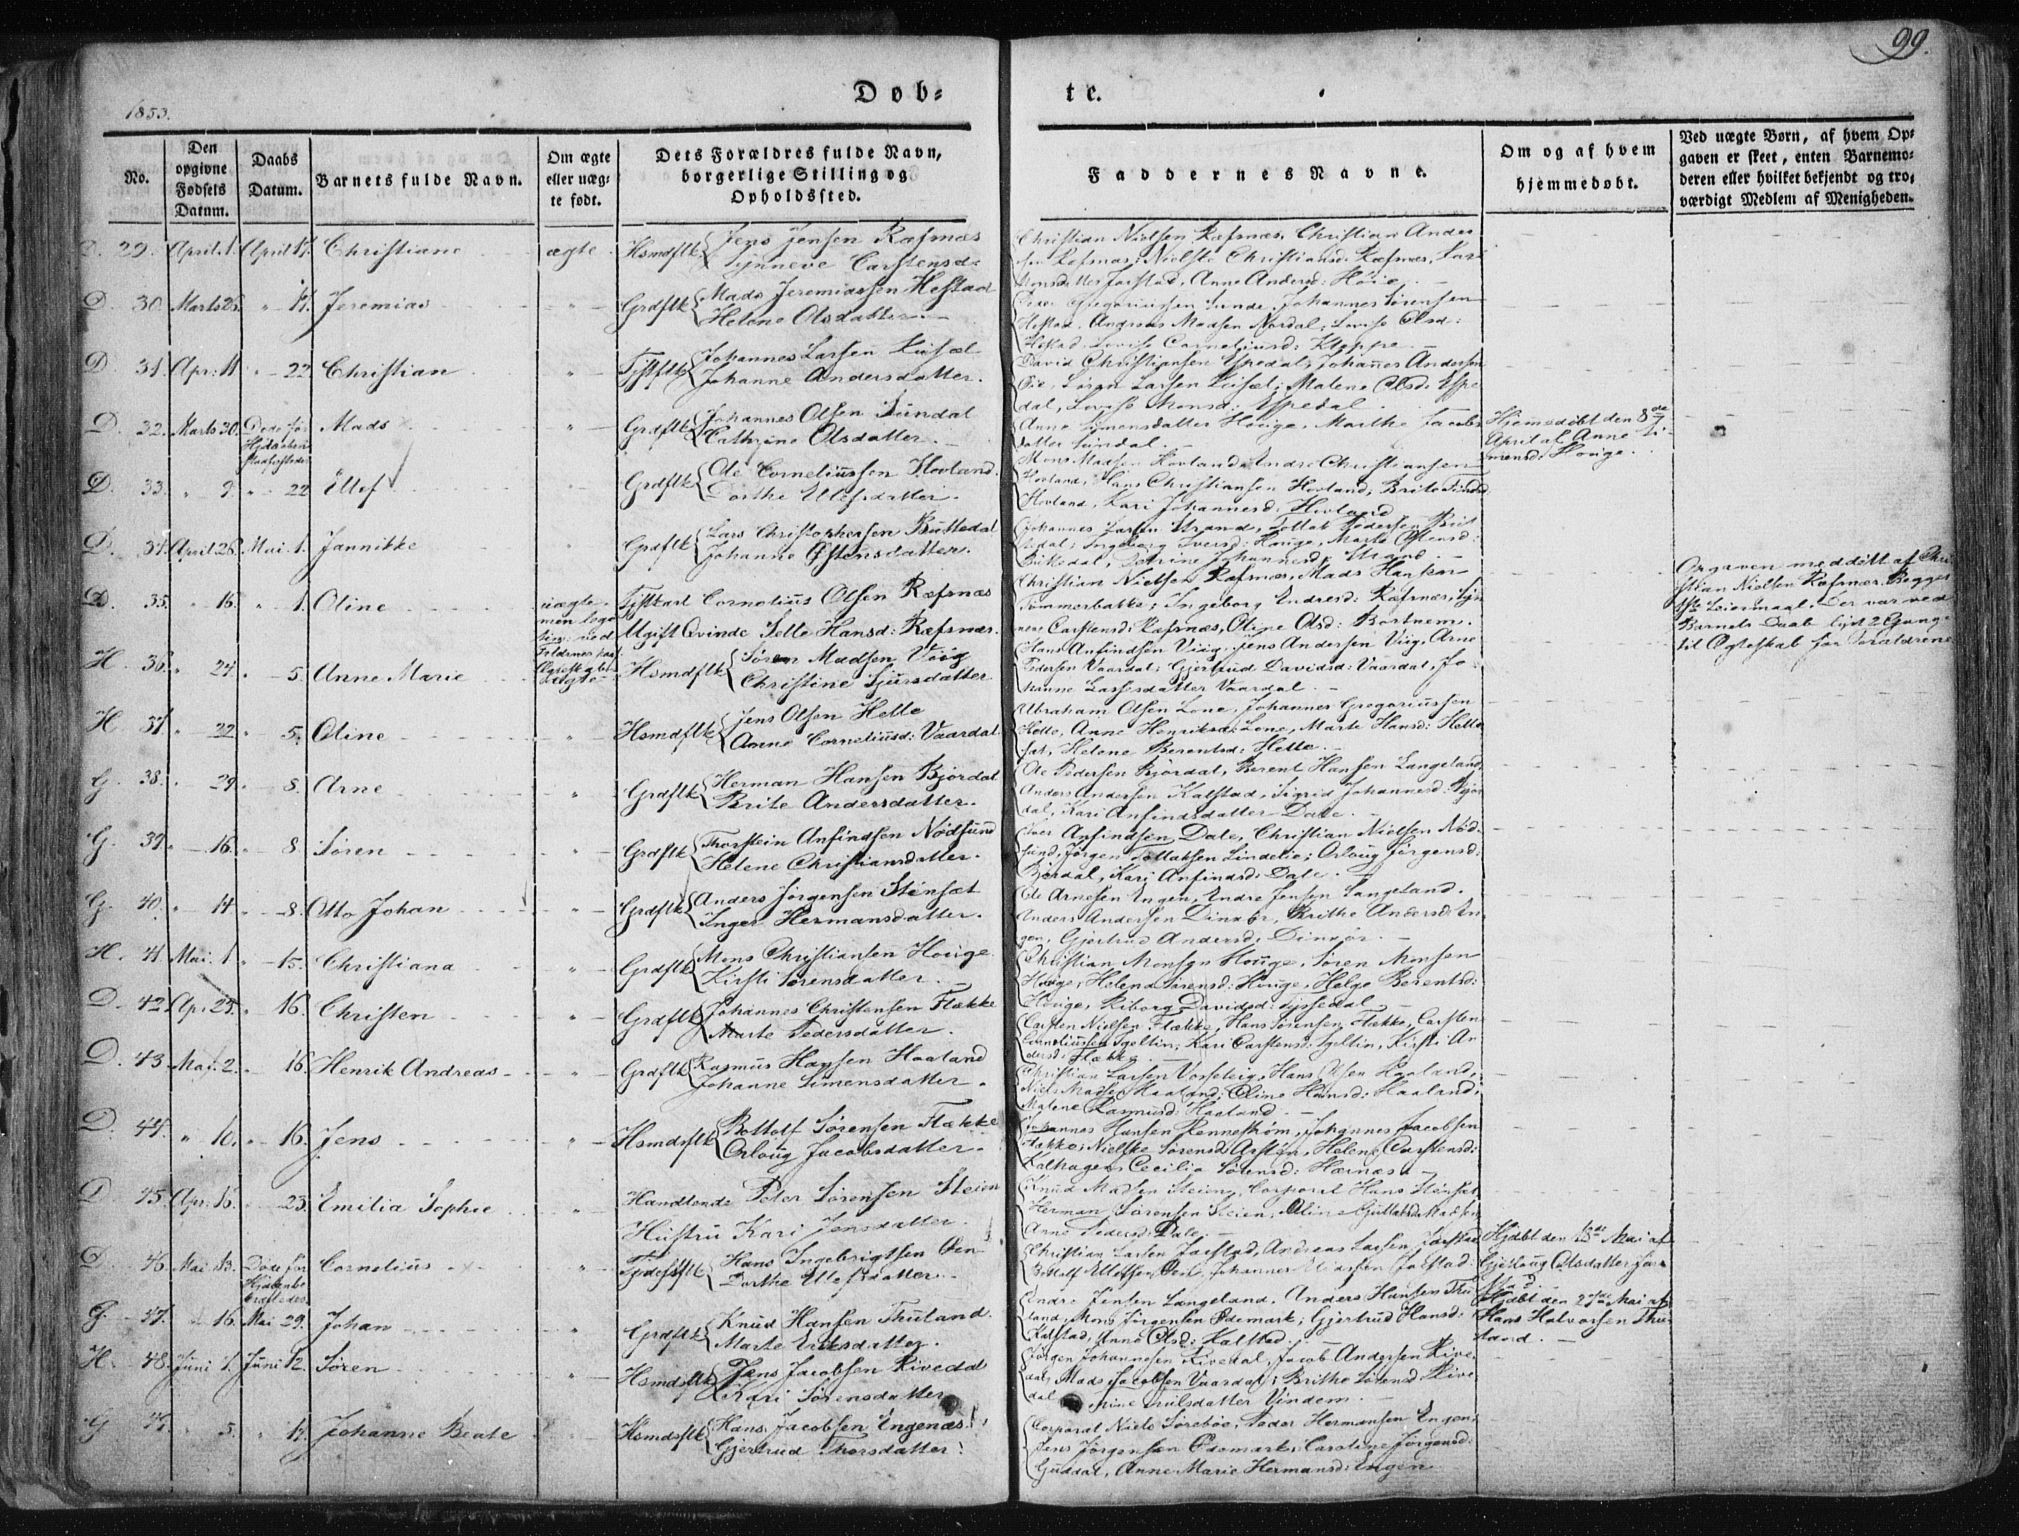 1853.
Døb=
te.
99.
No.
Den opgivne Fødsels Datum.
Daabs Datum.
Barnets fulde Navn.
Om ægte eller uæg-te født.
Dets Forældres fulde Navn, borgerlige Stilling og Opholdssted.
Faddernes Navne.
Om og af hvem hjemmedøbt.
Ved uægte Børn, af hvem Op-gaven er skeet, enten Barnemo-deren eller hvilket bekjendt og tro-værdigt Medlem af Menigheden.
D. 29. April 1. April 17. Christiane ægte Hsmdflk Jens Jensen Ræfsnæs
Synneve Carstensd:
Christian Nielsen Ræfsnæs, Christian Ander
sen Ræfsnæs, Nielste Christiansd: Ræfsnæs,
Anne Andersd: Høie
D. 30. Marts 25. " 17. Jeremias " Grdflk Mads Jeremiassen Hestad
Helene Olsdatter.
Peder Gregoriussen Sunde, Johannes Sørensen
Hestad, Andreas Madsen Nordal, Lovise Olsd:
Hestad, Lovise Corneliusd: Kleppe.
D. 31. Apr: 11. " 22. Christian " Johannes Larsen
Johanne Andersdatter.
David Christiansen Espedal, Johannes Andersen
Søren Larsen Malene Olsd: Espe
dal, Lovise Monsd: Espedal.
D. 32. Marts 30. Døde før Mads " Grdflk Johannes Olsen Sundal
Cathrine Olsdatter.
Anne Simensdatter Hovige, Marthe Jacobs
datter Sundal.
Hjemmedøbt den 8de
April af Anne Si-
mensd: Hovige.
D. 33. " 9. " 22. Ellef " Grdflk Ole Corneliussen Hovland.
Dorthe Ellefsdatter.
Mons Madsen Hovland, Endre Christiansen
Hovland, Hans Christiansen Hovland, Brite
Hovland, Kari Johannesd: Hovland
D. 34. April 28. Mai 1. Jannikke " Grdflk Lars Christophersen Birkedal
Johanne Østensdatter.
Johannes Larsen Strand, Tollak Pedersen Bir
kedal, Ingeborg Iversd: Houge, Marte Østensd:
Birkedal, Petrine Johannesd: Strand.
D. 35. " 16. " 1. Oline uægte Cornelius Olsen Ræfsnæs
Ugift Qvinde Selle Hansd: Ræfsnæs.
Christian Nielsen Ræfsnæs, Mads Hansen
Tømmerbakke, Ingeborg Endresd: Ræfsnæs, Syn
neve Carstensd: Ræfsnæs, Oline Olsd: Bortnem.
Opgaven meddelt af Chri
stian Nielsen Ræfsnæs. Begges
1ste Leiermaal. Der var ved
Barnets Daab lyst 2 Gange
til Ægteskab for Forældrene
H. 36. " 24. " 5. Anne Marie ægte Hsmdflk Søren Madsen Viig
Christine Sjursdatter
Hans Anfindsen Viig, Jens Andersen Viig, Arne
Pedersen Vaardal, Gjertrud Davidsd: Vaardal, Jo
hanne Lassesdatter Vaardal.
H 37. " 22. " 5. Oline " Hsmdflk Jens Olsen Helle
Anne Corneliusd: Vaardal
Abraham Olsen Lone, Johannes Gregoriussen
Helle, Anne Henriksd: Lone, Marte Hansd: Helle
Helene Berentsd: Helle.
G 38. " 29. " 8. Arne " Grdflk Herman Hansen Bjørdal
Brite Andersdatter.
Ole Pedersen Bjørdal, Berent Hansen Langeland,
Anders Andersen Kalstad, Sigrid Johannesd: Bjør
dal, Kari Anfindsdatter Dale.
G. 39. " 16. " 8. Søren " Grdflk Thorstein Anfindsen Nødsund
Helene Christiansdatter.
Iver Anfindsen Dale, Christian Nielsen Nød
sund, Jørgen Tollaksen Lindelie, Orloug Jørgensd:
Børdal, Kari Anfindsd: Dale.
G. 40. " 14. " 8. Otto Johan " Grdflk Anders Jørgensen Stensæt
Inger Hermansdatter.
Ole Arnesen Engen, Endre Jensen Langeland.
Anders Andersen Dinøør, Brithe Andersd: En
gen, Gjertrud Andersd: Dinøør.
H. 41. Mai 1. " 15. Christiana " Grdflk Mons Christiansen Hovige
Kirsti Sørensdatter.
Christian Monsen Hovige, Søren Monsen
Hovige, Helena Sørensd: Hovige, Helge Berentsd:
Hovige, Riborg Davidsd:
D. 42. Apr: 25. " 16. Christen " Grdflk Johannes Christensen Flekke
Marte Pedersdatter.
Carsten Nielsen Flække, Hans Sørensen Flække, Carsten
Corneliussen Sgeltin, Kari Carstensd: Sgeltin, Kirsti An
dersd: Flække.
D. 43. Mai. 2. " 16. Henrik Andreas " Grdflk Rasmus Hansen Haaland
Johanne Simensdatter.
Christian Larsen Vosseteig, Hans Olsen Haaland,
Niels Madsen Haaland, Oline Hansd: Haaland,
Malene Rasmusd: Haaland.
D. 44. " 10. " 16. Jens " Hsmdsflk Bottolf Sørensen Flække
Orloug Jacobsdatter.
Johannes Hansen Rennestrøm, Johannes Jacobsen
Flække, Nielske Sørensd: Helene Carstensd:
Kalhagen, Cecilia Sørensd: Hærnæs.
D. 45. Apr: 16. " 23. Emilia Sophie " Handlende Peter Sørensen Steien
Hustru Kari Jensdatter.
Knud Madsen Steien, Corporal Hans Stensæt
Herman Sørensen Steien,
Anne Pedersd: Dale.
D. 46. Mai 13. Døde før Cornelius " Hans Ingebrigtsen
Dorthe Ellefsdatter.
Christian Larsen Jarstad, Andreas Larsen Jarstad
Bottolf Ellefsen Johannes Jarstad.
Hjdbt den Mai af
Gjerloug Olsdatter Jar-
stad.
G. 47. " 16. Mai 29. Johan " Grdflk Knud Hansen Thuland.
Marte Eriksdatter
Endre Jensen Langeland, Anders Hansen Thu
land, Mons Jørgensen Ødemark, Gjertrud Hansd:
Kalstad, Anne Olsd: Kalstad.
Hjdbt den Mai af
Hans Halvorsen Thu-
land.
H. 48. Juni 1. Juni 12. Søren Hsmdsflk Jens Jacobsen Rivedal
Kari Sørensdatter
Jørgen Johannesen Rivedal, Jacob Andersen Rive
dal, Mads Jacobsen Vaardal, Brithe Sørensd: Rive
dal, Vindem
G 49. " 5. " 17. Johanne Beate " Hsmdsflk Hans Jacobsen Engenæs
Gjertrud Thorsdatter.
Corporal Niels Sørebøe, Peder Hermansen Engen,
Jens Jørgensen Ødemark, Caroline Jørgensd:
Guddal, Anne Marie Hermansd: Engen